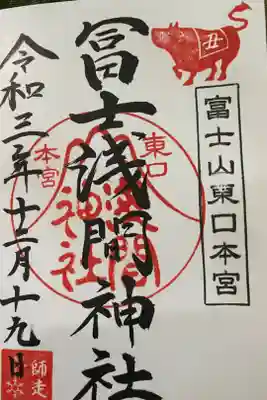 丑
富士山東口本宮
冨士浅間神社
東口
本宮
神社
令和三年十二月十九日
師走